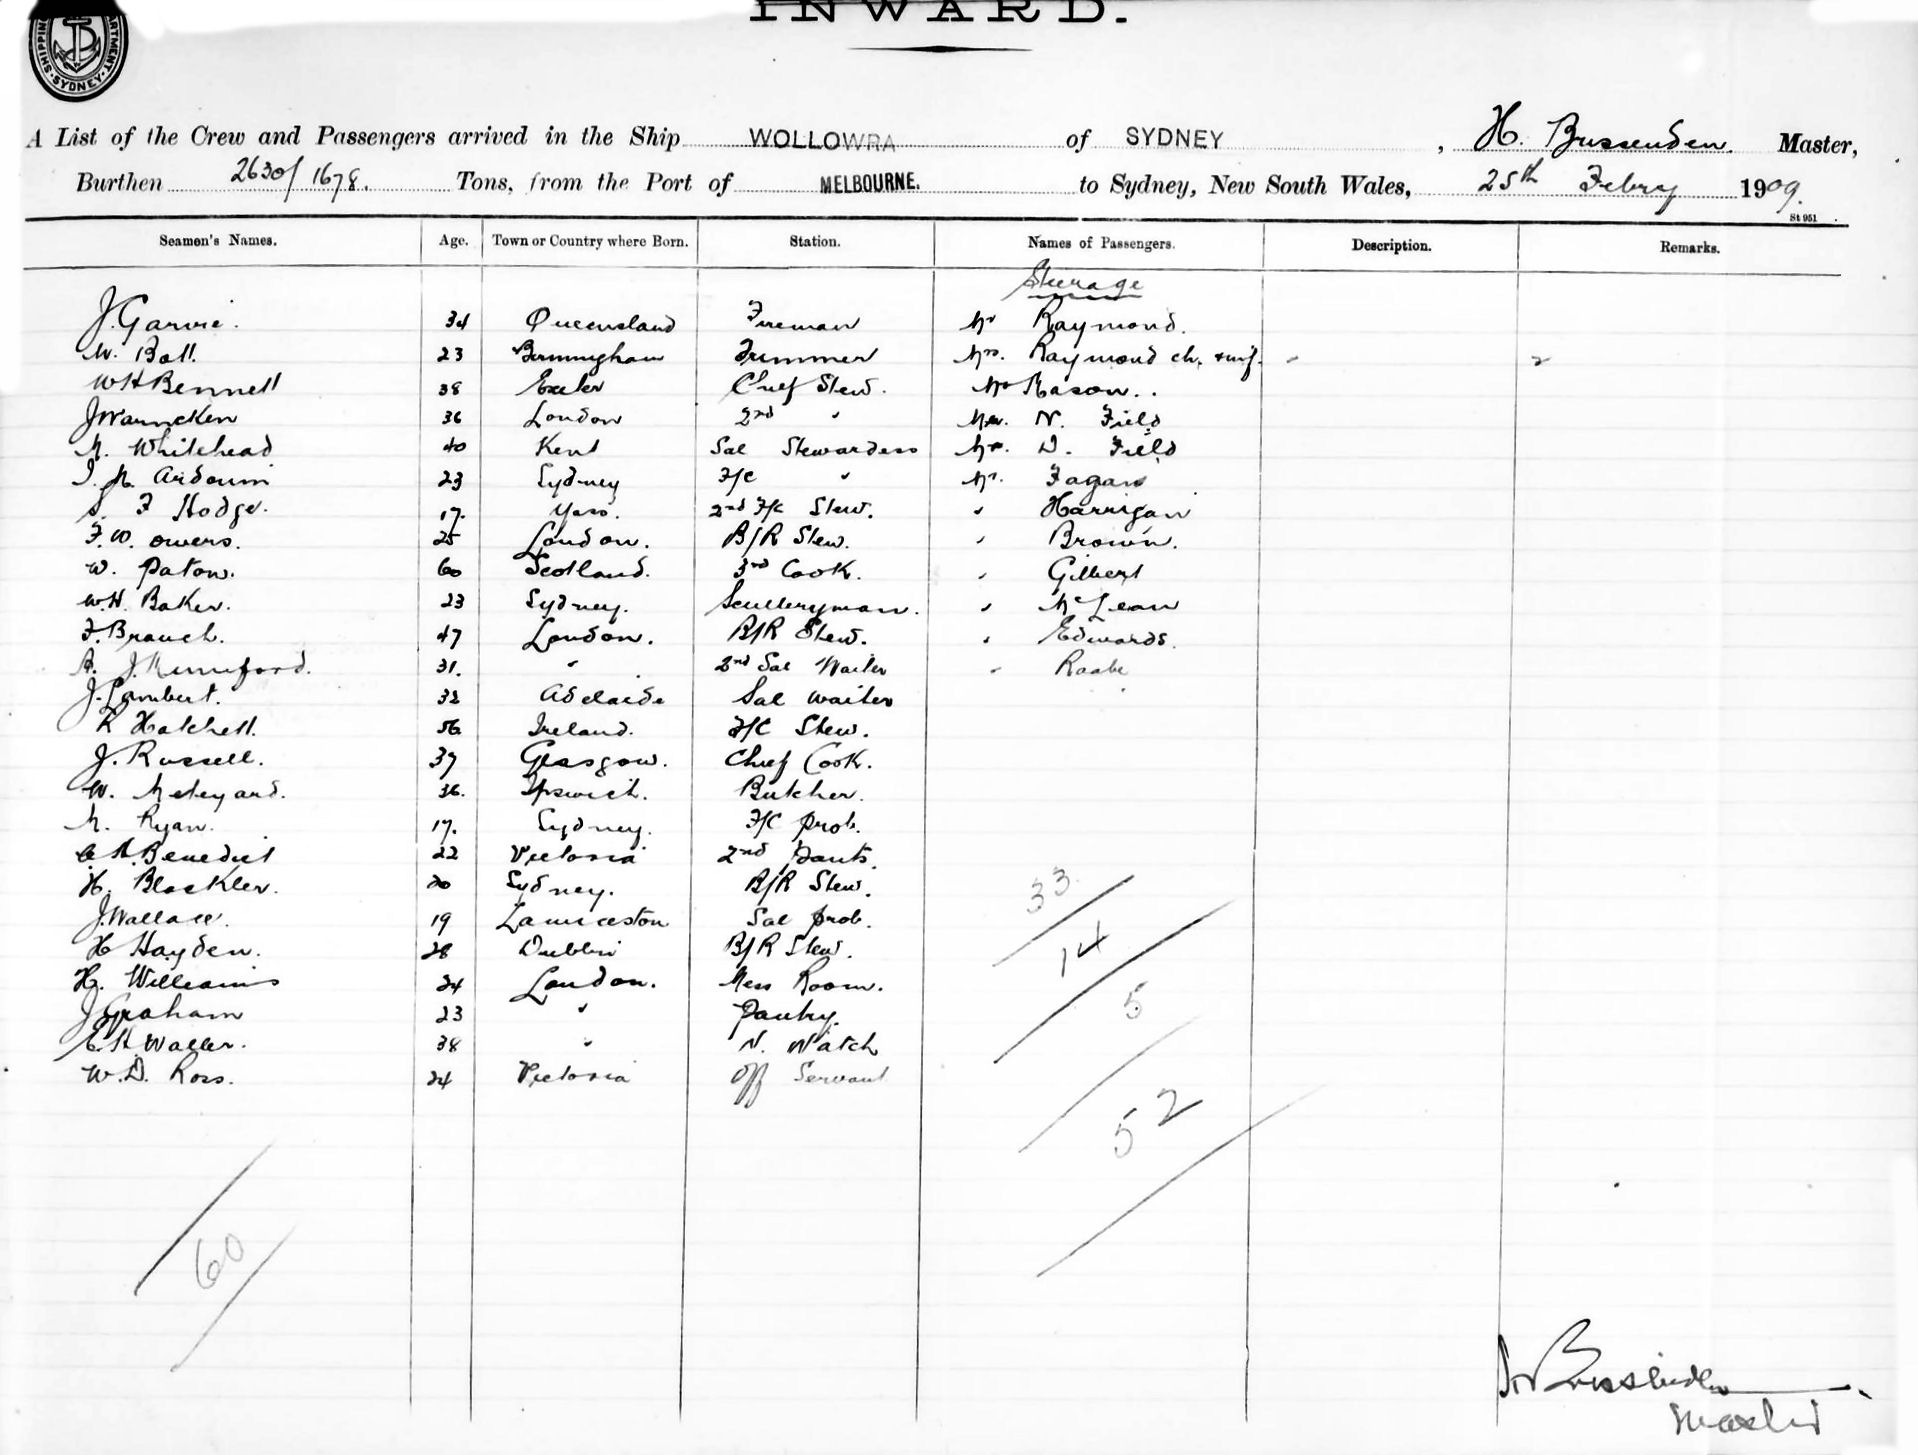 INWARD.
SHIPPING DEPARTMENT. SYDNEY.
A List of the Crew and Passengers arrived in the Ship WOLLOWRA of SYDNEY, H. Brissenden. Master,
Burthen 2630/1678. Tons, from the Port of MELBOURNE. to Sydney, New South Wales, 25th Febry 1909.
St 951
Seamen's Names. Age. Town or Country where Born. Station. Names of Passengers. Description. Remarks.
Steerage
J. Garvie. 34 Queensland Fireman Mr Raymond.
W. Ball. 23 Birmingham Trimmer Mrs. Raymond ch. + inf. - 2
W H Bennett 38 Exeter Chief Stew. Mr Mason..
J Warncken 36 London 2nd " N. Field
M. Whitehead 40 Kent Sal Stewardess D. Field
Ardouin 23 Sydney F/C " Mr. Fagan
S. F Hodge. 17. Yass. 2nd F/C Stew. " Harrigan
F. W. Owers. 25 London. B/R Stew. " Brown.
W. Paton. 60 Scotland. 3rd Cook. " Gilbert
W. H. Baker. 23 Sydney. Sculleryman. " McLean
F. Branch. 47 London. B/R Stew. " Edwards.
J. Mumford. 31. " 2nd Sal Waiter " Raabe
J. Lambert. 32 Adelaide Sal Waiter
Hatchell. 56 Ireland. F/C Stew.
J. Russell. 37 Glasgow. Chief Cook.
W. Meteyard. 36. Ipswich. Butcher.
M. Ryan. 17. Sydney. F/C prob.
Benedict 22 Victoria 2nd Pants.
H. Blackler. 20 Sydney. B/R Stew.
J. Wallace. 19 Launceston Sal prob.
H Hayden. 28 Dublin B/R Stew.
H. Williams 24 London. Mess Room.
J Graham 23 " Pantry.
E. H Waller. 38 " N. Watch
W. D. Ross. 24 Victoria Off Servant
33
14
5
52
60
Brissenden
Master